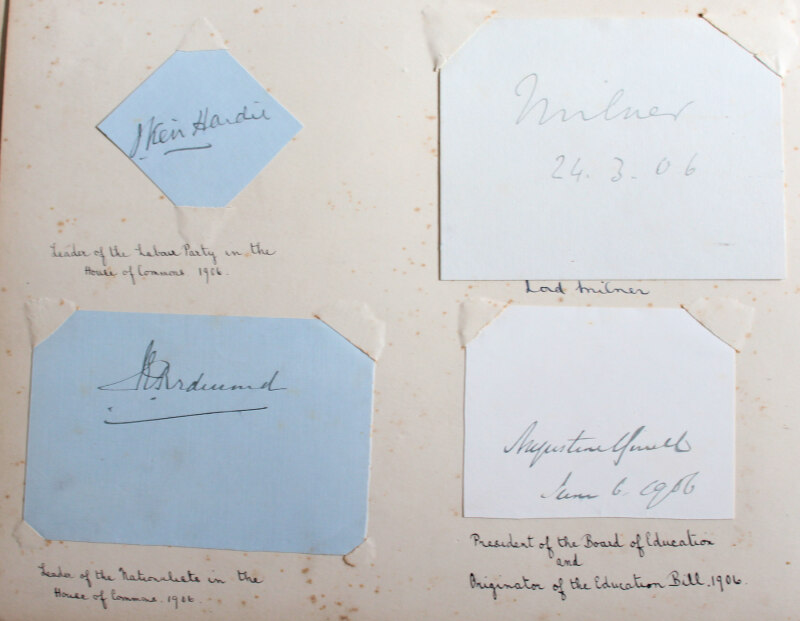 J. Keir Hardie
Leader of the Labour Party in the
House of Commons 1906.
Milner
24. 3. 06
Lord Milner
J E Redmond
Leader of the Nationalists in the
House of Commons. 1906.
Augustine Birrell
June 6. 1906
President of the Board of Education
and
Originator of the Education Bill. 1906.